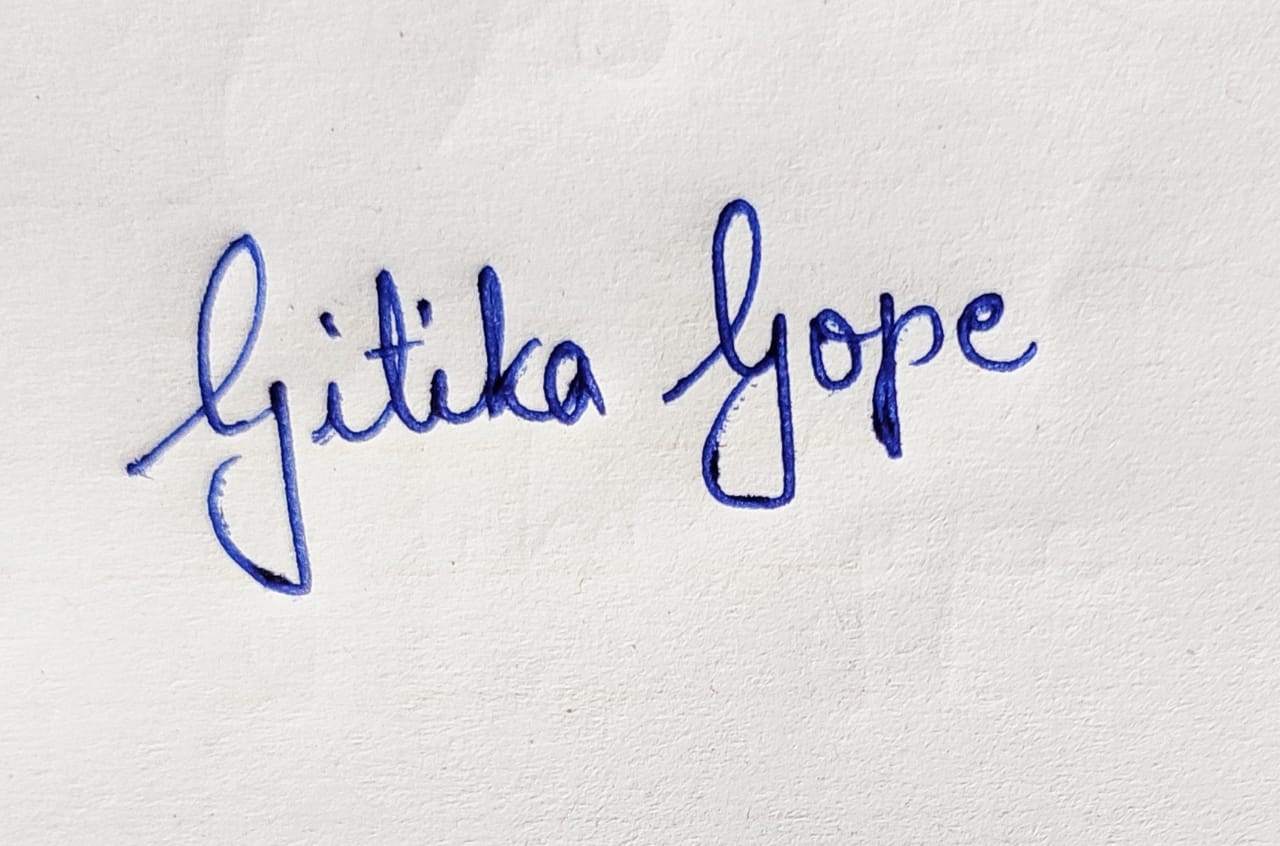 Gitika Gope